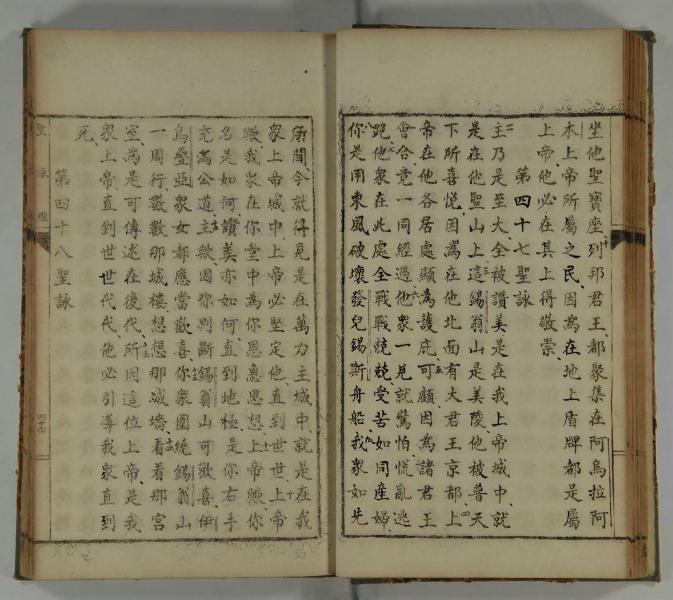 坐他聖寶座列邦君王都聚集在阿烏拉阿
木上帝所屬之民因為在地上盾牌都是屬
上帝他必在其上得敬崇
第四十七聖詠
主乃是至大全被讚美是在我上帝城中就
是在他聖山上這錫翁山是美陵他被普天
下所喜悅因為在他北面有大君王京都上
帝在他各居處顯為護庇可顧因為諸君王
會合竟一同經過他衆一見就驚怕慌亂逃
跑他衆在此處全戰戰兢兢受苦如同產婦
你是用東風破壞發兒錫斯舟船我衆如先
所聞今就得見是在萬力主城中就是在我
衆上帝城中上帝必堅定他直到世世上帝
歟我衆在你堂中為你恩惠思想上帝歟你
名是如何讚美亦如何直到地極是你右手
充滿公道主歟因你判斷錫翁山可歡喜伊
烏疊亞衆女都應當歡喜你衆圍繞錫翁山
一周行數數那城樓想想那城墻看看那宮
室為是可傳述在後代所因這位上帝是我
衆上帝直到世世代代他必引導我衆直到
死
第四十八聖詠
聖詠經
四十四